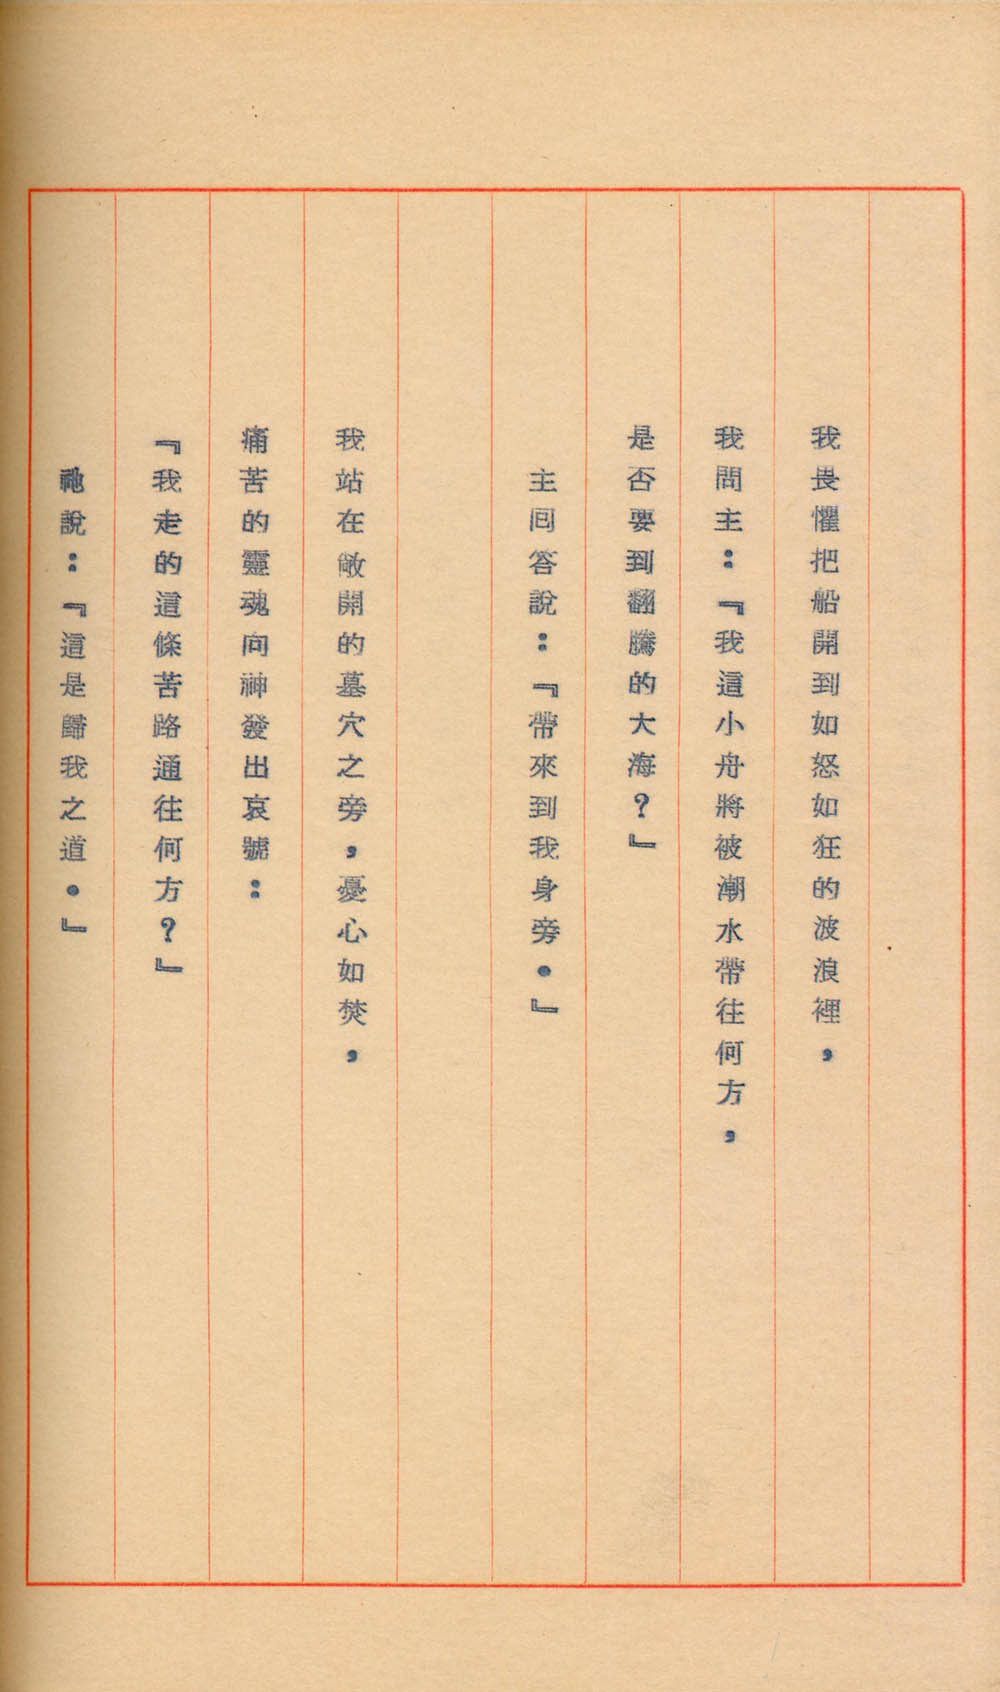 我畏懼把船開到如怒如狂的波浪裡，
我問主：『我這小舟將被潮水帶往何方，
是否要到翻騰的大海？』
主囘答說：『帶來到我身旁。』
我站在敞開的墓穴之旁，憂心如焚，
痛苦的靈魂向神發出哀號：
『我走的這條苦路通往何方？』
祂說：『這是歸我之道。』